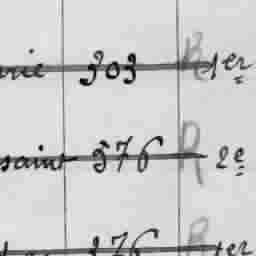 rie 303 R 1er
saint 576 R 2e
376 R 1er